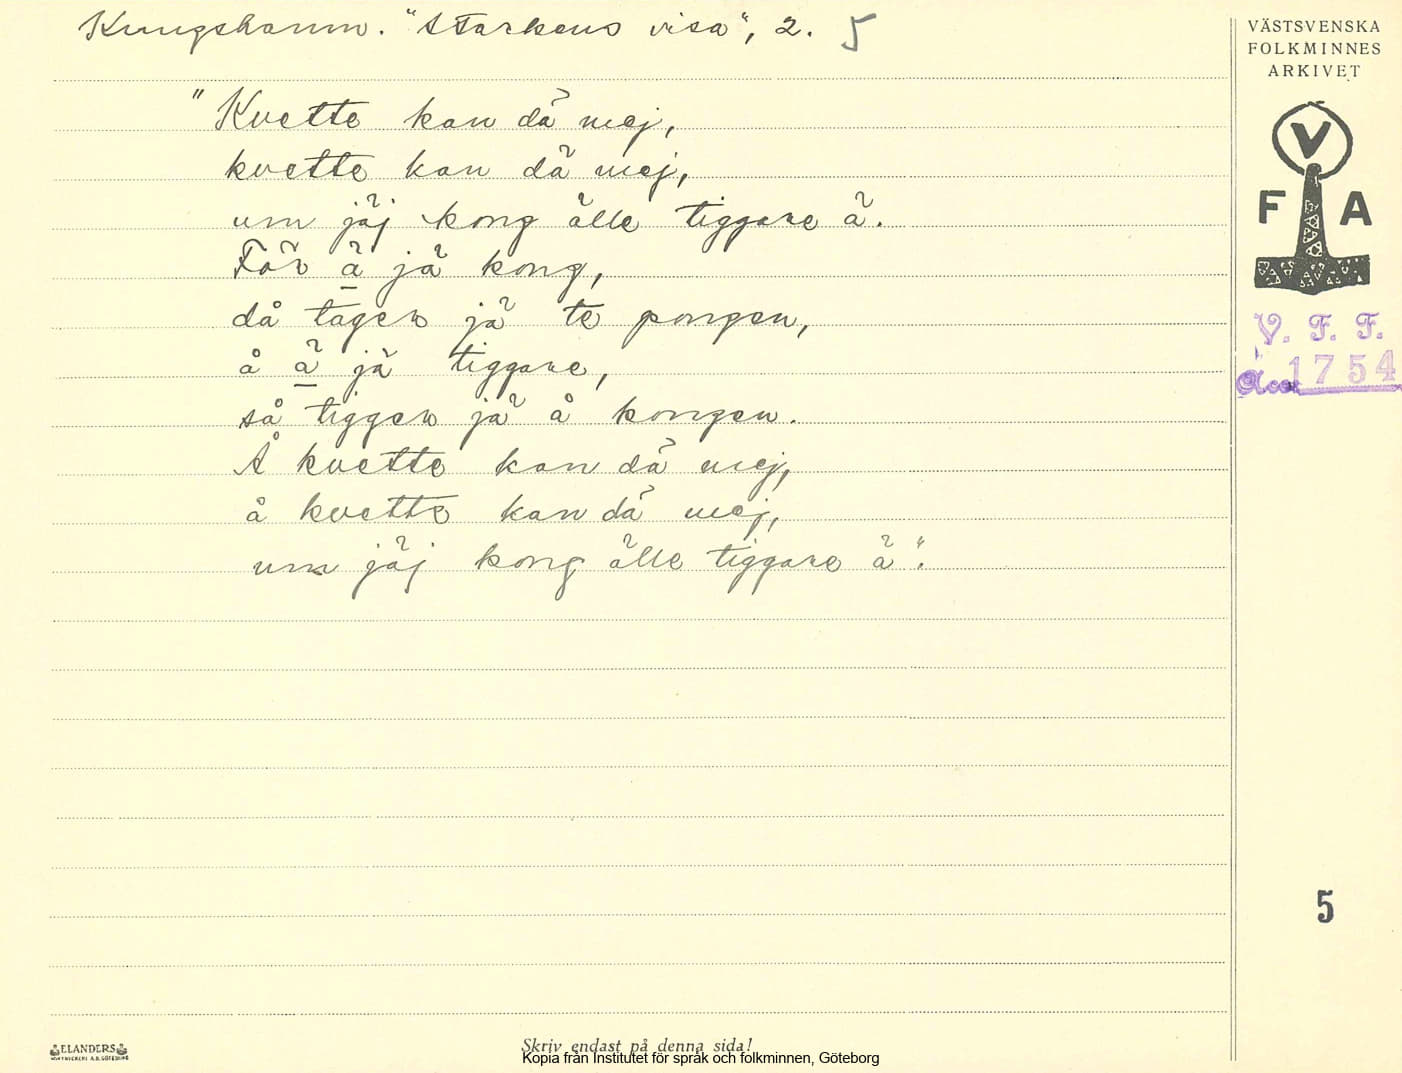 Kungshamn. "Starkens visa", 2. 5
"Kvette kan dä mej,
kvette kan dä mej,
um jäj kong älle tiggare ä.
För ä jä kong,
då tager jä te pongen,
å ä jä tiggare,
så tigger jä å kongen.
Å kvette kan dä mej,
å kvette kan dä mej,
um jäj kong älle tiggare ä".
VÄSTSVENSKA
FOLKMINNES
ARKIVET
V
F A
V. F. F.
Acc. 1754
5
ELANDERS
Skriv endast på denna sida!
Kopia från Institutet för språk och folkminnen, Göteborg